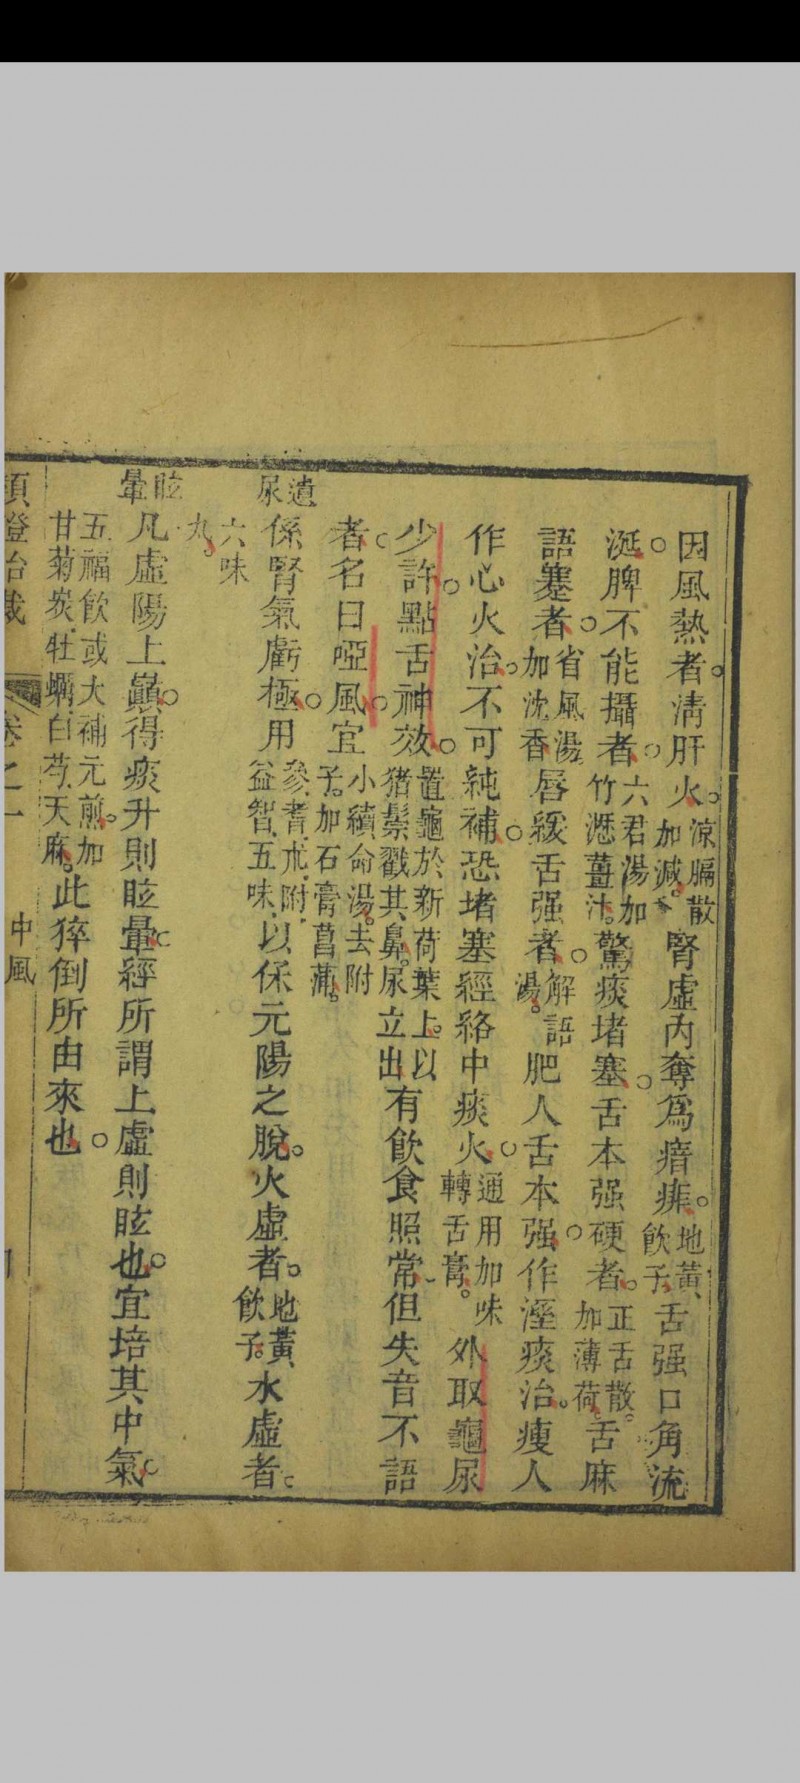 因風熱者清肝火涼膈散加減腎虛內奪爲瘖痱地黃飲子舌强口角流
涎脾不能攝者六君湯加竹瀝薑汁驚痰堵塞舌本强硬者正舌散加薄荷舌麻
語蹇者省風湯加沈香唇緩舌强者解語湯肥人舌本强作溼痰治瘦人
作心火治不可純補恐堵塞經絡中痰火通用加味轉舌膏外取龜尿
少許點舌神效置龜於新荷葉上以猪鬃戳其鼻尿立出有飲食照常但失音不語
者名曰啞風宜小續命湯去附子加石膏菖蒲
遺尿
係腎氣虧極用參耆朮附益智五味以保元陽之脫火虛者地黃飲子水虛者
六味丸
眩暈
凡虛陽上巔得痰升則眩暈經所謂上虛則眩也宜培其中氣
五福飲或大補元煎加甘菊炭牡蠣白芍天麻此猝倒所由來也
類證治裁
卷之一
中風